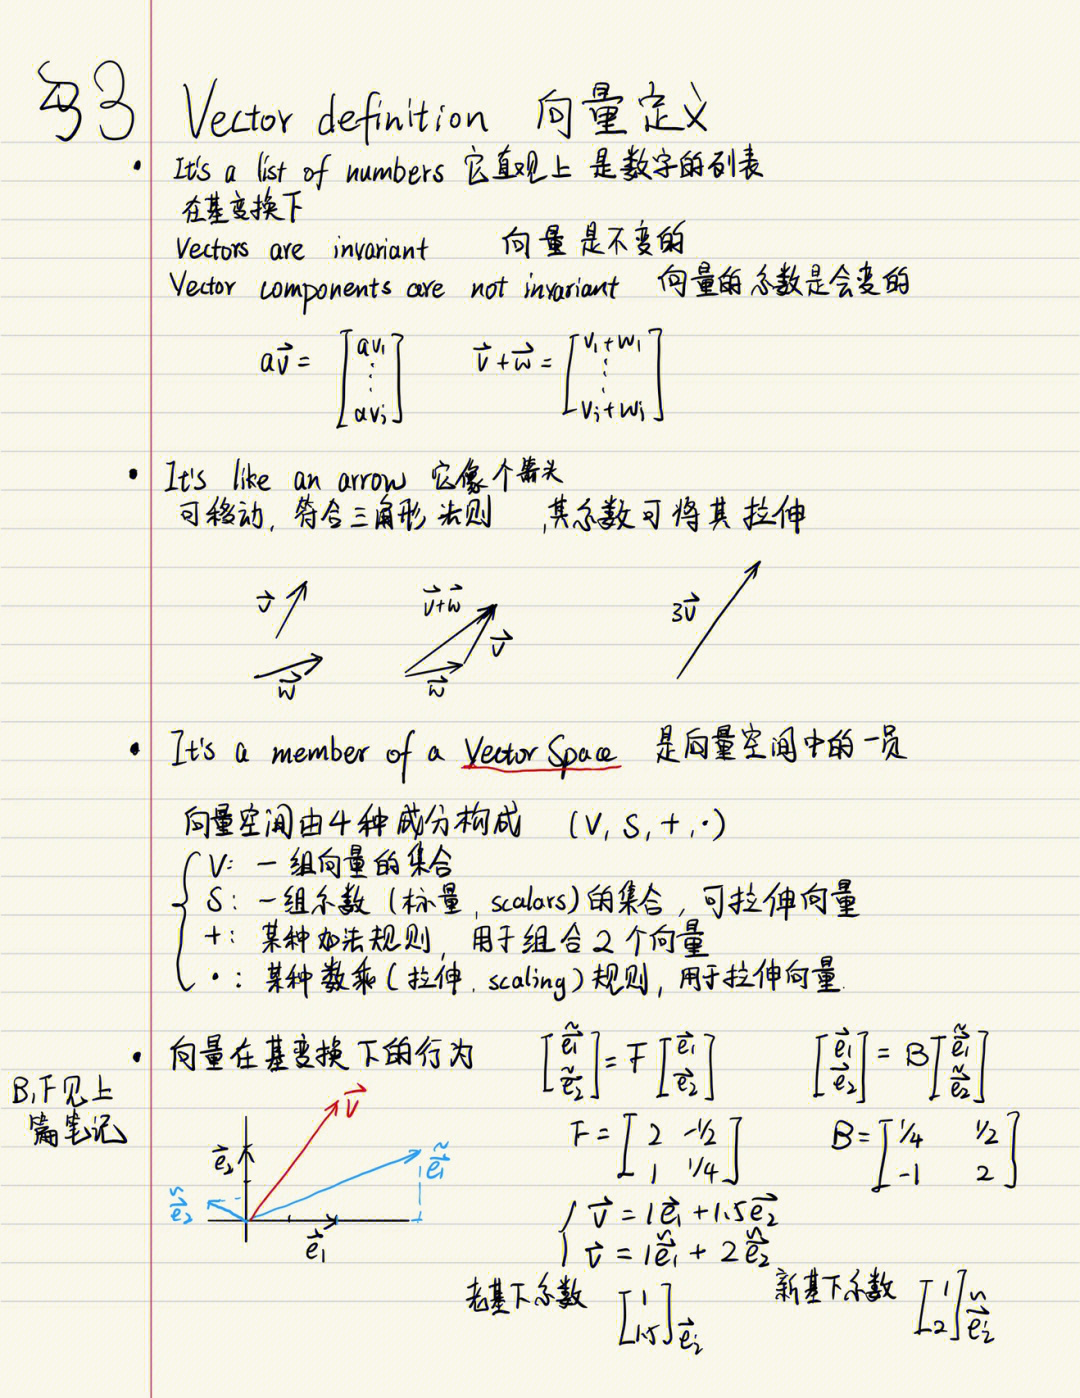 §3 Vector definition 向量定义
• It's a list of numbers 它直观上 是数字的列表
在基变换下
Vectors are invariant 向量是不变的
Vector components are not invariant 向量的系数是会变的
a\vec{v} = [av₁ ⋮ avᵢ] \vec{v}+\vec{w} = [v₁+w₁ ⋮ vᵢ+wᵢ]
• It's like an arrow 它像个箭头
可移动, 符合三角形法则 ,其系数可将其拉伸
\vec{v} \vec{v}+\vec{w} 3\vec{v}
\vec{v}
\vec{w} \vec{w}
• It's a member of a Vector Space 是向量空间中的一员
向量空间由4种成分构成 (V, S, +, ·)
V: 一组向量的集合
S: 一组系数 (标量, scalars) 的集合, 可拉伸向量
+: 某种加法规则, 用于组合2个向量
·: 某种数乘 (拉伸, scaling) 规则, 用于拉伸向量.
• 向量在基变换下的行为 [\tilde{\vec{e₁}} \tilde{\vec{e₂}}] = F [\vec{e₁} \vec{e₂}] [\vec{e₁} \vec{e₂}] = B [\tilde{\vec{e₁}} \tilde{\vec{e₂}}]
B, F见上
篇笔记
\vec{v}
\vec{e₂} \tilde{\vec{e₁}}
\tilde{\vec{e₂}}
\vec{e₁}
F = [2 -1/2 1 1/4] B = [1/4 1/2 -1 2]
\vec{v} = 1\vec{e₁} + 1.5\vec{e₂}
\vec{v} = 1\tilde{\vec{e₁}} + 2\tilde{\vec{e₂}}
老基下系数 [1 1.5]\vec{eᵢ} 新基下系数 [1 2]\tilde{\vec{eᵢ}}